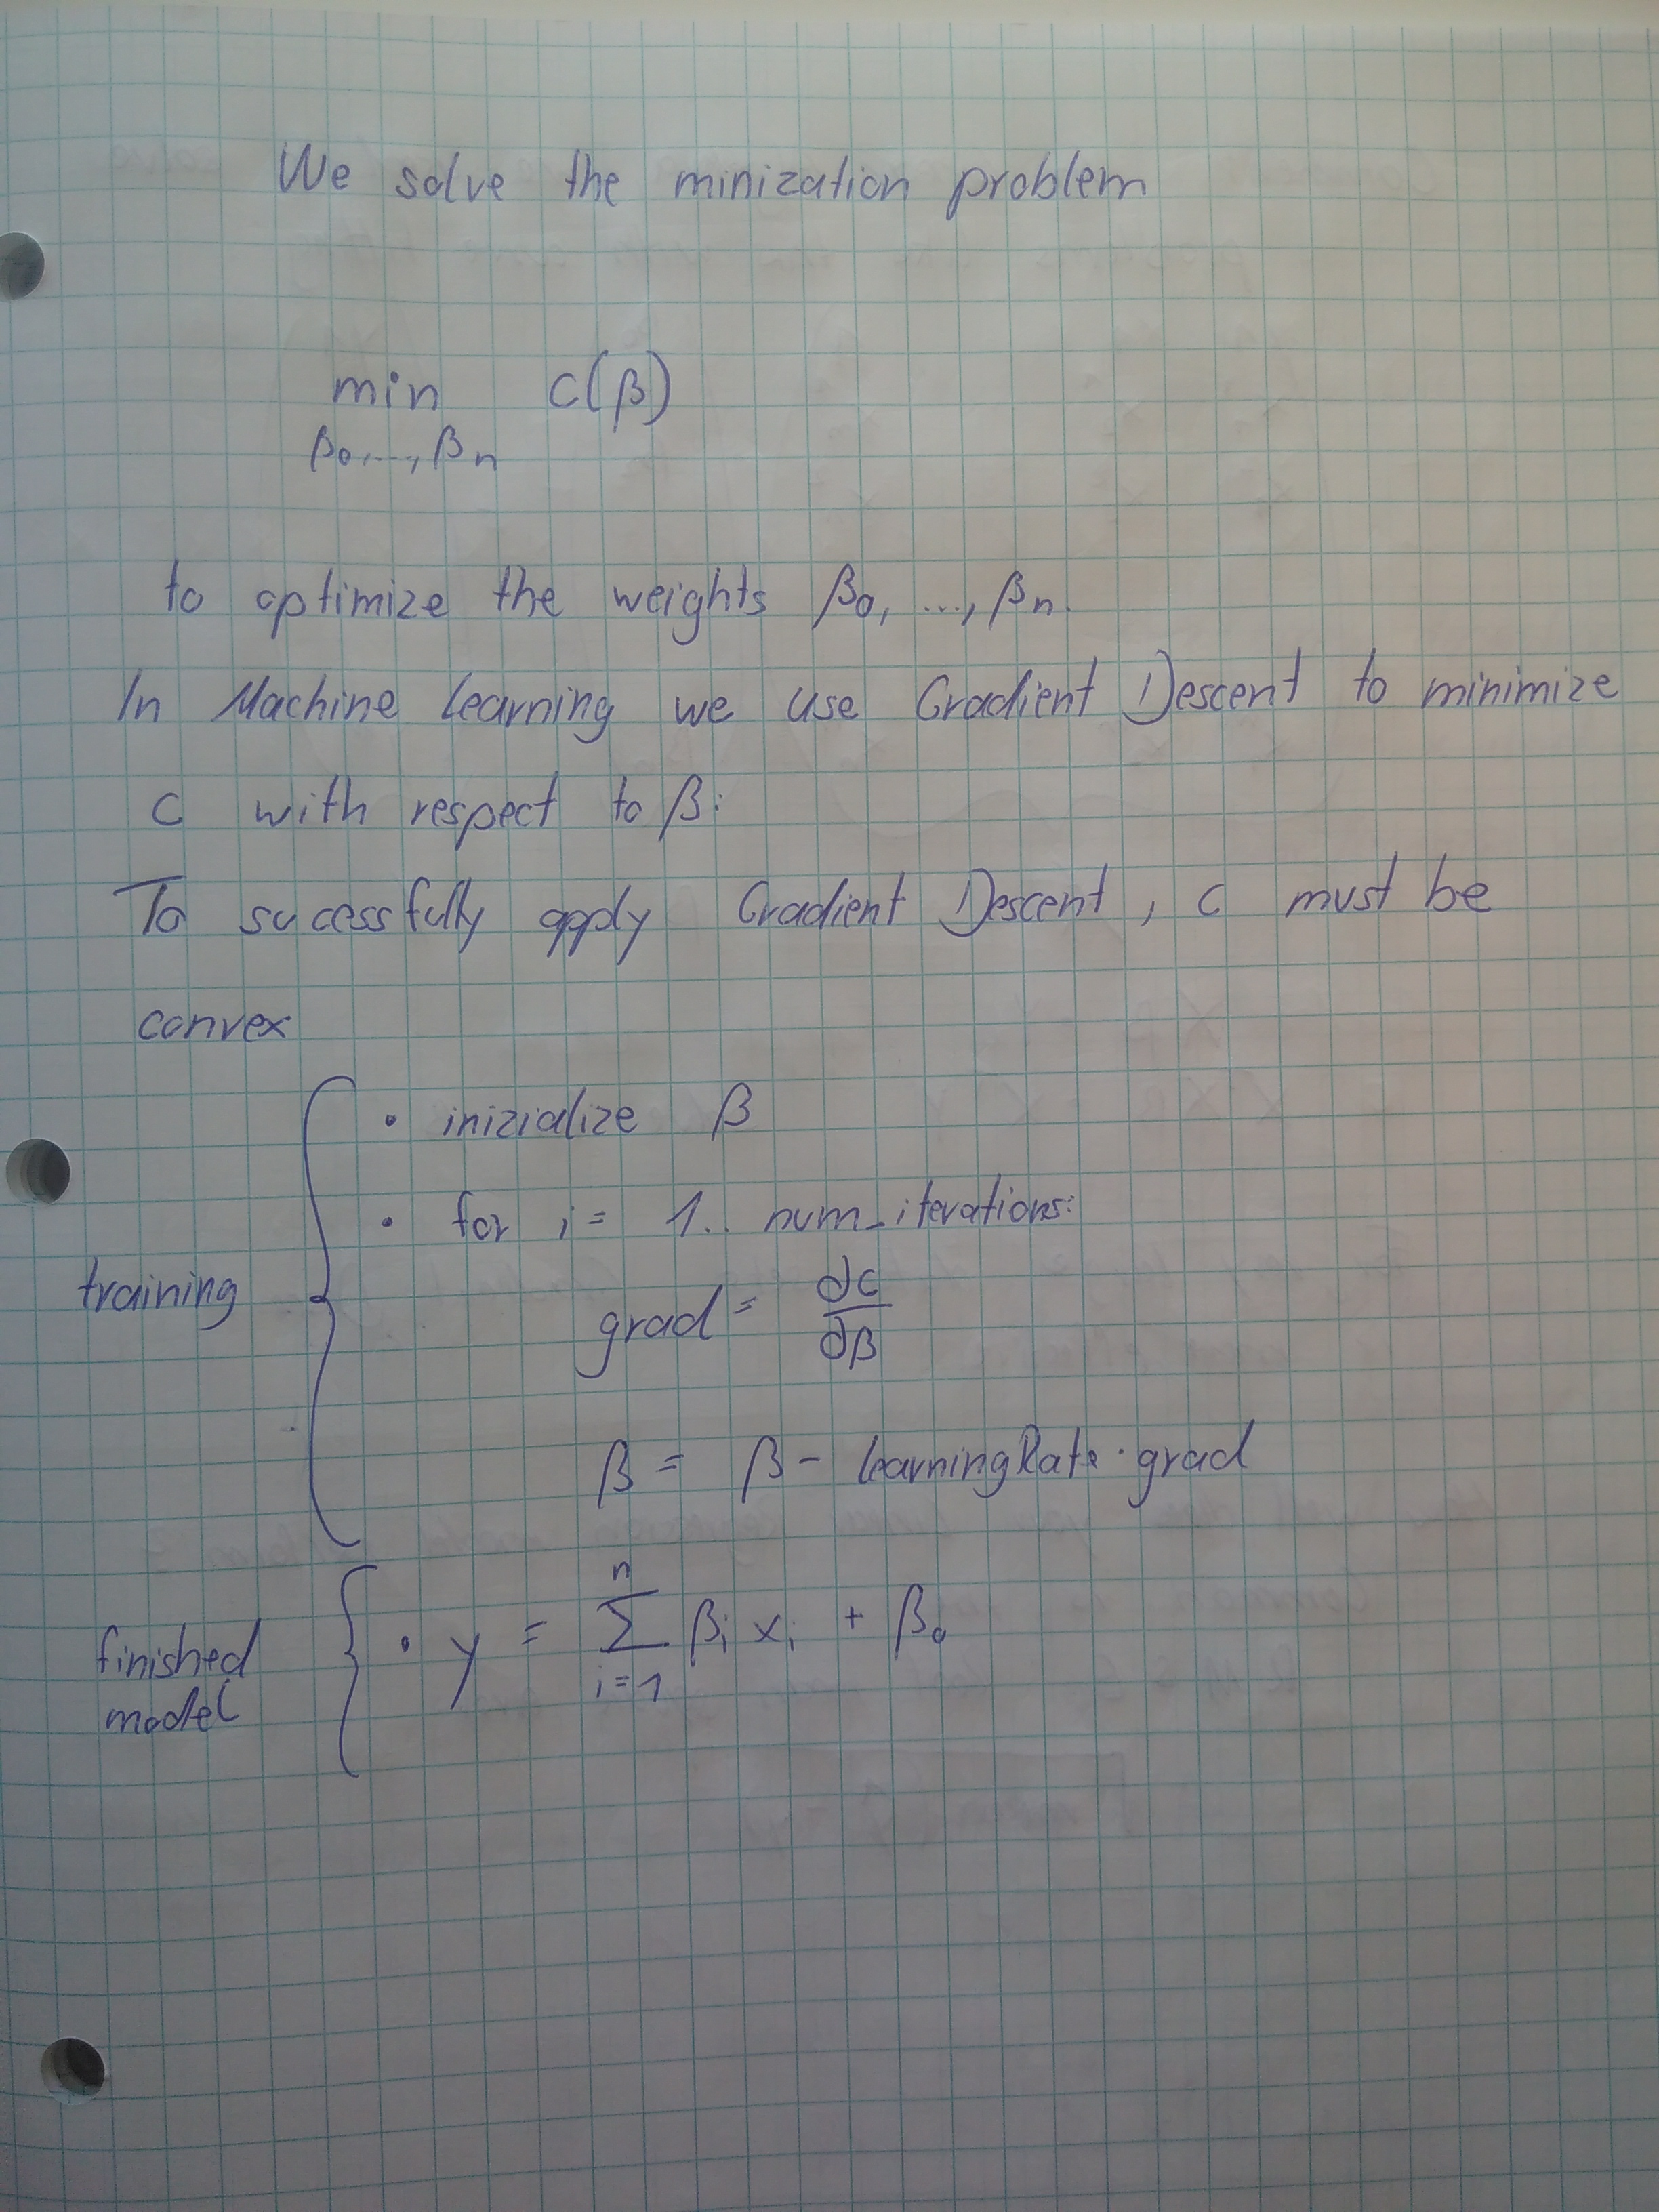 We solve the minization problem
min C(β)
β₀,...,βₙ
to optimize the weights β₀, ..., βₙ.
In Machine Learning we use Gradient Descent to minimize
C with respect to β:
To sucessfully apply Gradient Descent, C must be
convex
• inizialize β
• for i = 1.. num_iterations:
training
grad = ∂C/∂β
β = β - learningRate · grad
finished model { • y = ∑ᵢ₌₁ⁿ βᵢ xᵢ + β₀